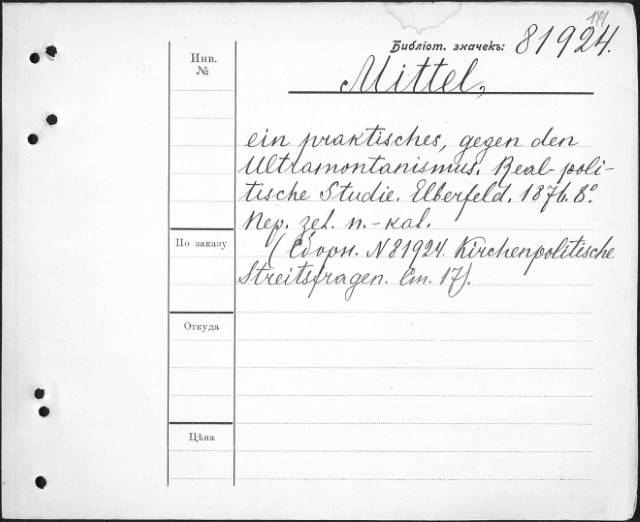 Библіот. значекъ: 81924.
Инв.
№
Mittel,
ein praktisches, gegen den
Ultramontanismus. Real-poli-
tische Studie. Elberfeld. 1876. 8º.
Пер. zel. п.-kal.
По заказу
(Сборн. N81924. Kirchenpolitische
Streitsfragen. Ст. 17).
Откуда
Цѣна